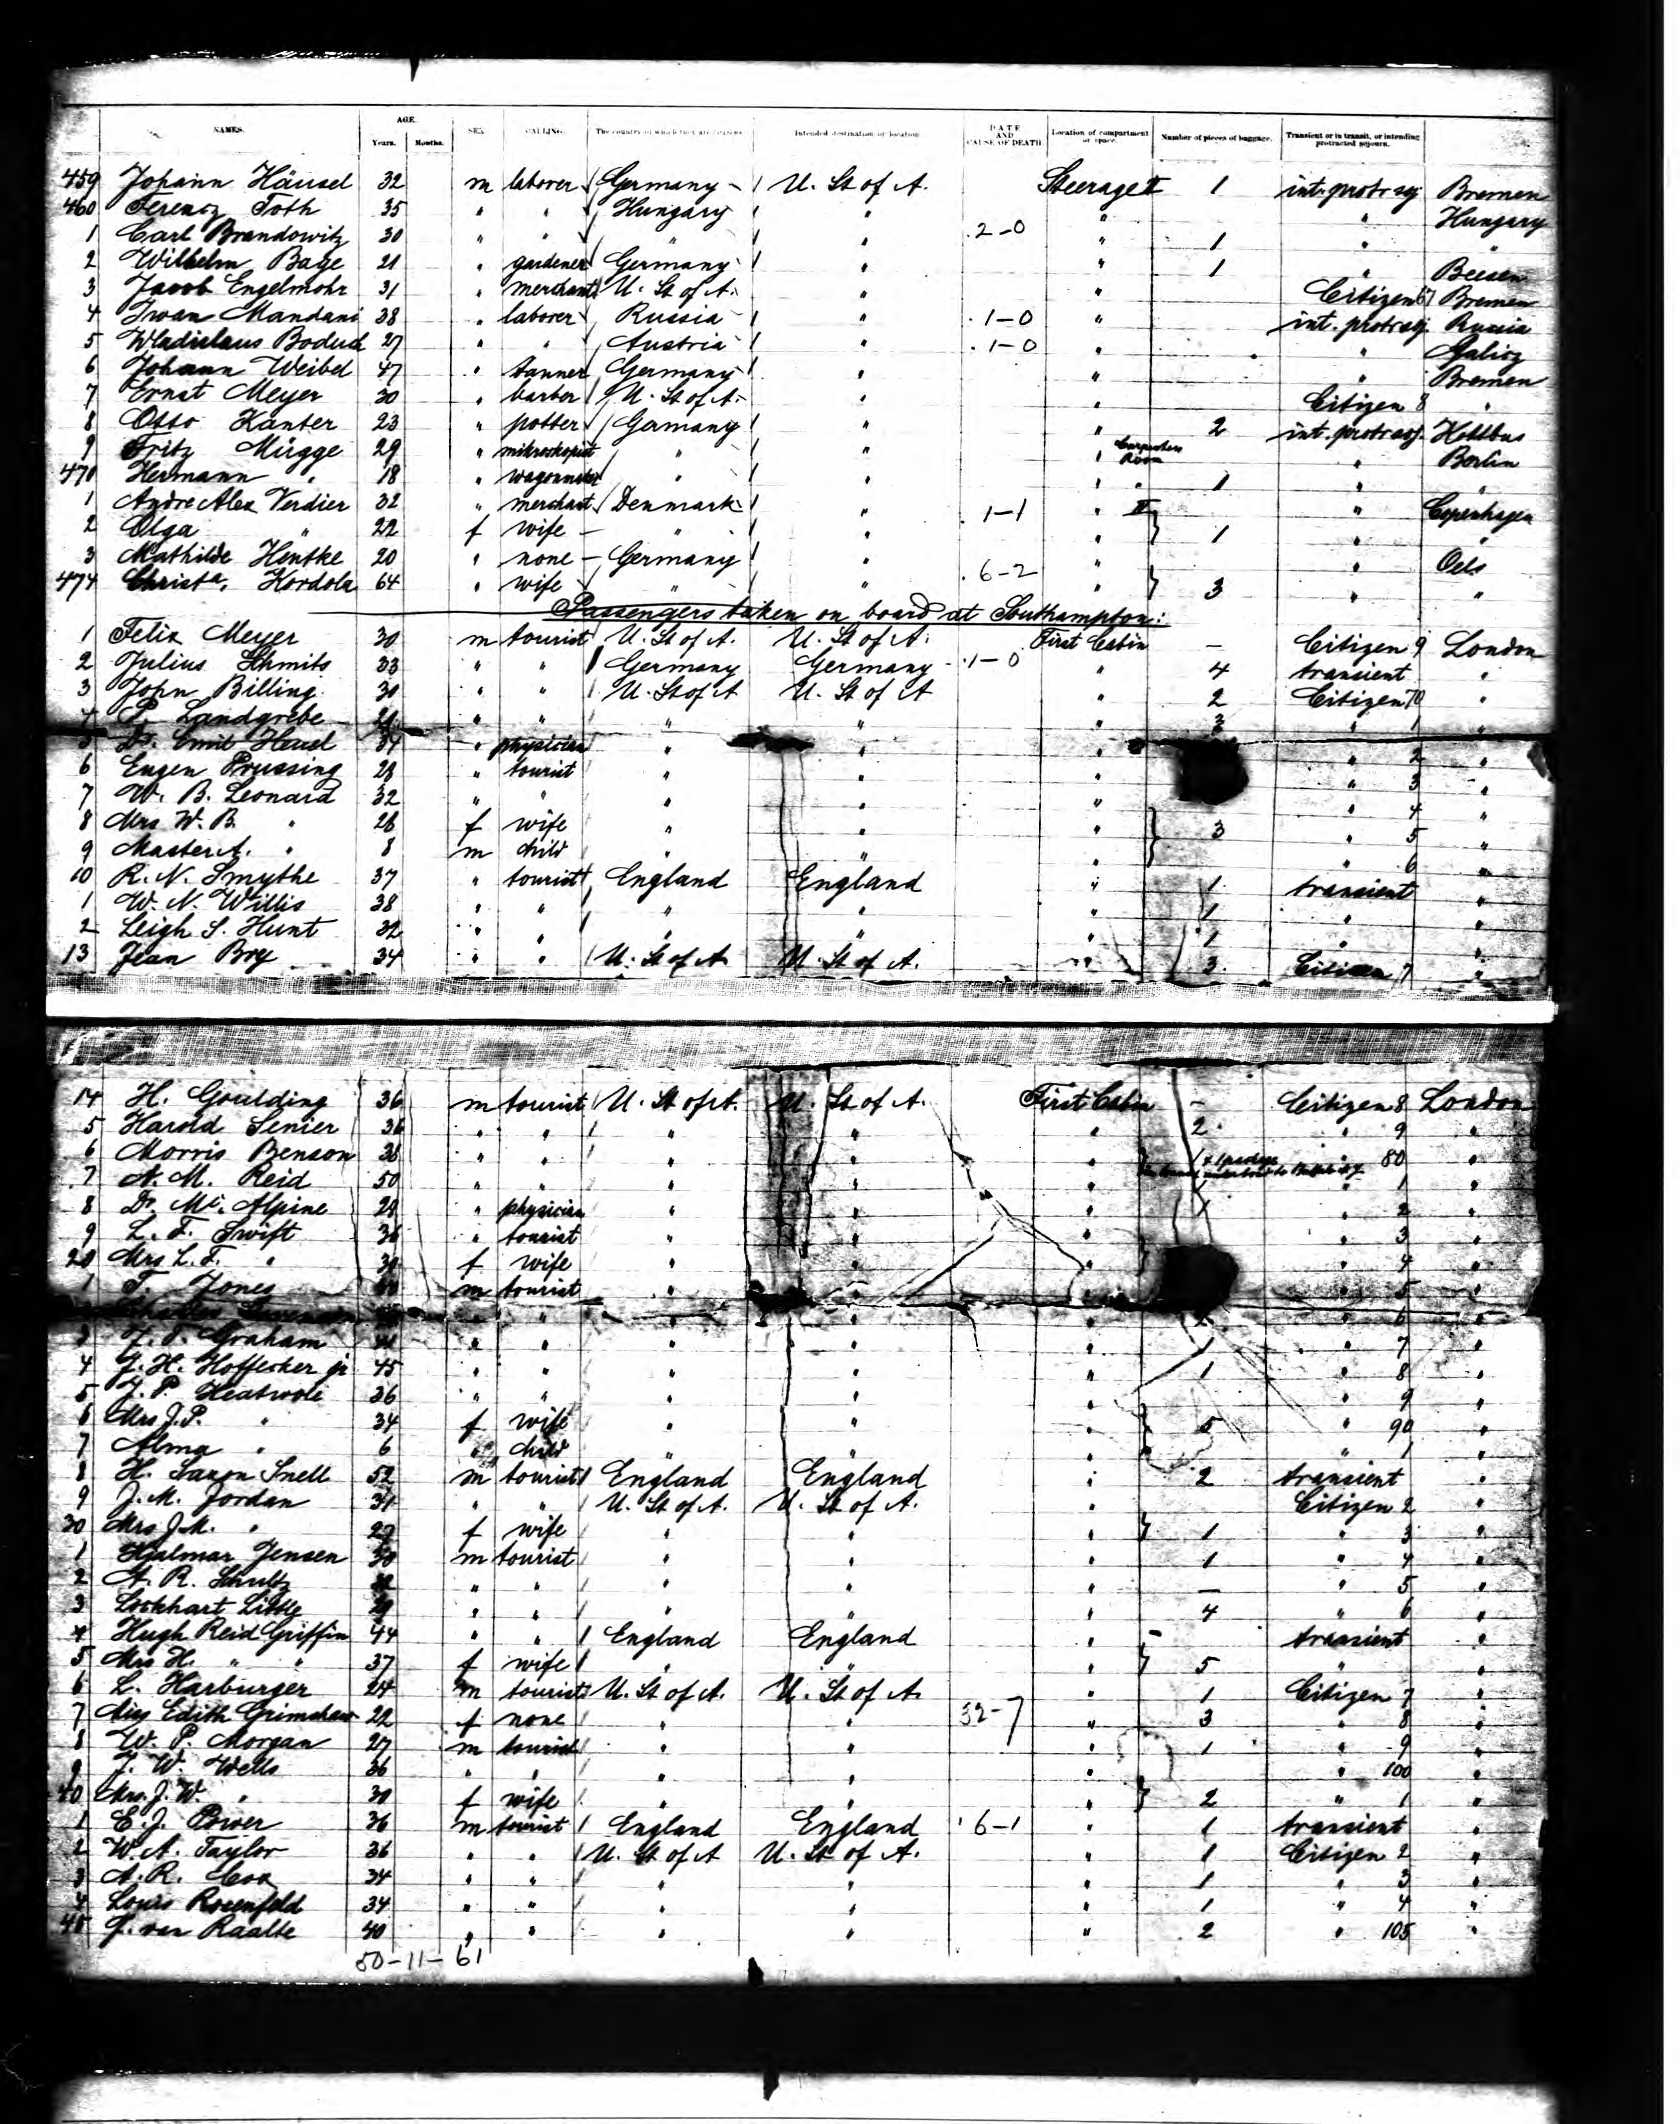 NAMES. AGE. Years. Months. SEX. CALLING. The country of which they are citizens. Intended destination or location. DATE AND CAUSE OF DEATH Location of compartment or space. Number of pieces of baggage. Transient or in transit, or intending protracted sojourn.
459 Johann Hänsel 32 m laborer Germany U. St of A. Steerage II 1 int. protr soj Bremen
460 Ferencz Toth 35 " " Hungary " " " Hungary
1 Carl Brandowitz 30 " " " " 2-0 " 1 " "
2 Wilhelm Bage 21 " gardener Germany " " 1 " Beesen
3 Jacob Engelmohr 31 " merchant U. St of A. " " Citizen 67 Bremen
4 Iwan Mandani 38 " laborer Russia " 1-0 " int. protr soj. Russia
5 Wladislaus 27 " " Austria " 1-0 " " Galicz
6 Johann Weibel 47 " tanner Germany " " " Bremen
7 Ernst Meyer 30 " barber U. St of A. " " Citizen 8 "
8 Otto Kanter 23 " potter Germany " " 2 int. protr soj. Kottbus
9 Fritz Mügge 29 " mikroskopist " " " Carpenters Room " Berlin
470 Hermann " 18 " " " " " 1 " "
1 Andre Alex Verdier 32 " merchant Denmark " 1-1 " II " Copenhagen
2 Olga " 22 f wife " " " 1 " "
3 Mathilde Hentke 20 " none Germany " 6-2 " " Oels
474 Christa. Kordola 64 " wife " " " 3 " "
Passengers taken on board at Southampton:
1 Felix Meyer 30 m tourist U. St of A. U. St of A. First Cabin - Citizen 9 London
2 Julius Schmits 33 " " Germany Germany 1-0 " 4 transient "
3 John Billing 30 " " U. St of A U. St of A " 2 Citizen 70 "
4 P. Landgrebe 21 " " " " " 3 " 1 "
5 Dr. Emil 34 " physician " " " " 2 "
6 Eugen Prussing 28 " tourist " " " " 3 "
7 W. B. Leonard 32 " " " " " " 4 "
8 Mrs W. B. " 28 f wife " " " 3 " 5 "
9 Master A. " 8 m child " " " " 6 "
10 R. N. Smythe 37 " tourist England England " 1 transient "
1 W. N. Willis 38 " " " " " 1 " "
2 Leigh S. Hunt 32 " " " " " 1 " "
13 Jean Bry 34 " " U. St of A. U. St of A. " 3 Citizen 7 "
14 H. Goulding 36 m tourist U. St of A. U. St of A. First Cabin - Citizen 8 London
5 Harold Senier 36 " " " " " 2 " 9 "
6 Morris Benson 38 " " " " " " 80 "
7 A. M. Reid 50 " " " " " " 1 "
8 Dr. Mc. Alpine 29 " physician " " " 1 " 2 "
9 L. F. Swift 36 " tourist " " " " 3 "
20 Mrs L. F. " 30 f wife " " " " 4 "
1 F. Jones m tourist " " " " 5 "
" " " " " " 6 "
3 J. F. Graham " " " " " 1 " 7 "
4 J. H. Hoffecker jr 45 " " " " " 1 " 8 "
5 J. P. Heatwole 36 " " " " " " 9 "
6 Mrs J. P. " 34 f wife " " " 5 " 90 "
7 Alma " 6 " child " " " " 1 "
8 H. Saxon Snell 52 m tourist England England " 2 transient "
9 J. M. Jordan 31 " " U. St of A. U. St of A. " Citizen 2 "
30 Mrs J. M. " 27 f wife " " " 1 " 3 "
1 Hjalmar Jensen 30 m tourist " " " 1 " 4 "
2 A. R. Schultz " " " " " - " 5 "
3 Lockhart Little 29 " " " " " 4 " 6 "
4 Hugh Reid Griffin 44 " " England England " - transient "
5 Mrs H. " " 37 f wife " " " 5 " "
6 L. Harburger 24 m tourist U. St of A. U. St of A. " 1 Citizen 7 "
7 Miss Edith Grimshaw 22 f none " " 32-7 " 3 " 8 "
8 W. P. Morgan 27 m tourist " " " 1 " 9 "
9 J. W. Wells 36 " " " " " " 100 "
40 Mrs. J. W. " 30 f wife " " " 2 " 1 "
1 E. J. Power 36 m tourist England England 6-1 " 1 transient "
2 W. A. Taylor 36 " " U. St of A U. St of A. " 1 Citizen 2 "
3 A. R. Cox 34 " " " " " 1 " 3 "
4 Louis Rosenfeld 34 " " " " " 1 " 4 "
45 J. van Raalte 40 " " " " " 2 " 105 "
50-11-61